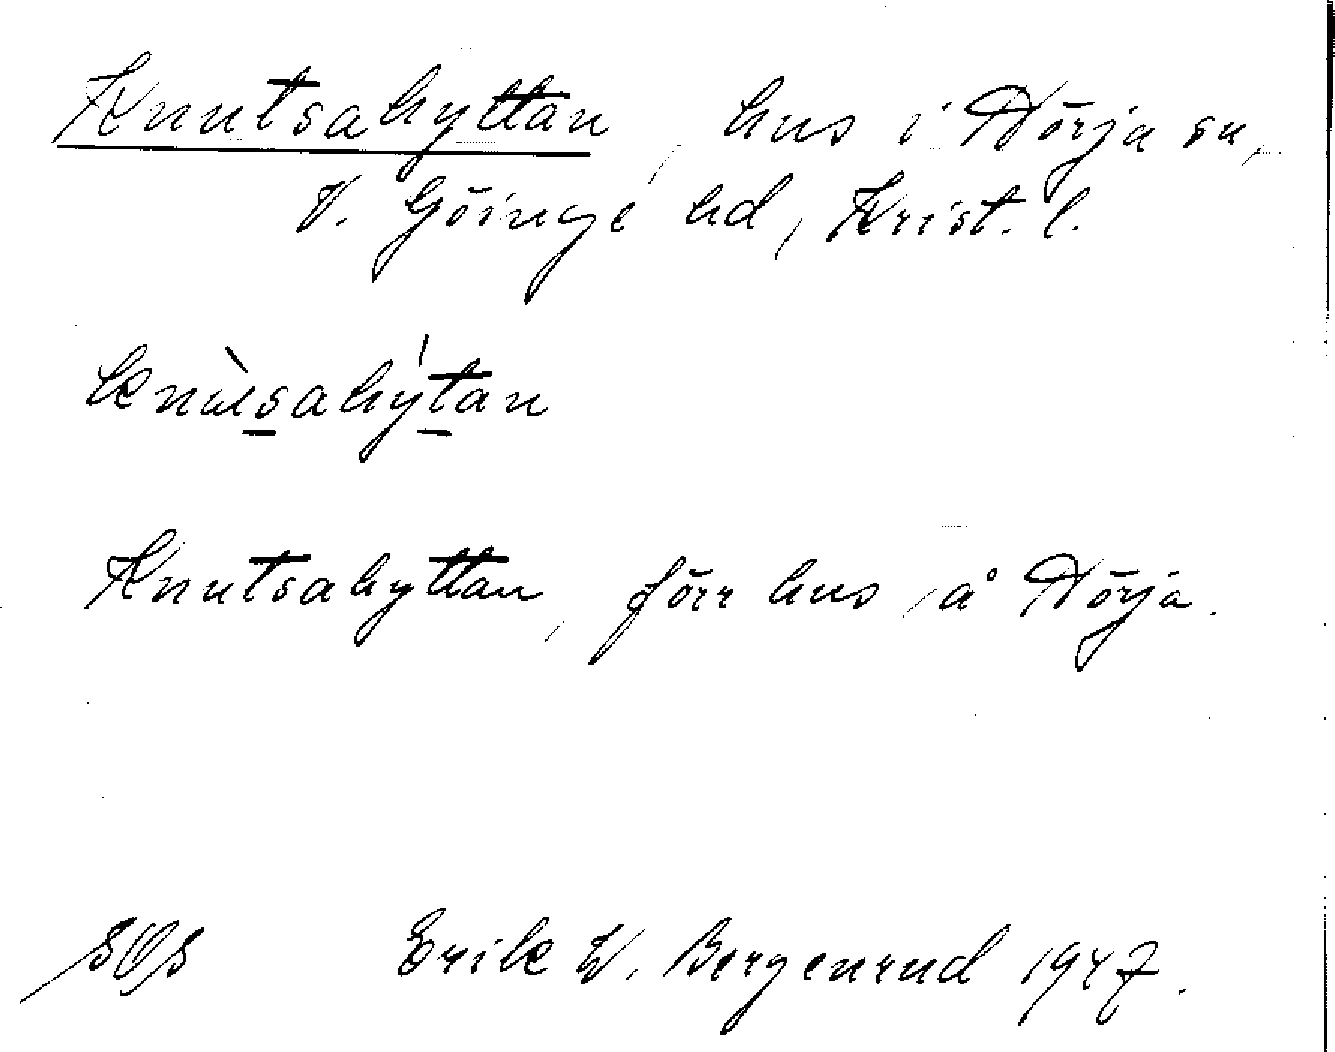 Knutsahyttan, hus i Hörja sn,
V. Göinge hd, Krist. l.
knùtsahýtan
Knutsahyttan, förr hus å Hörja.
SOS Erik W. Bergenrud 1947.